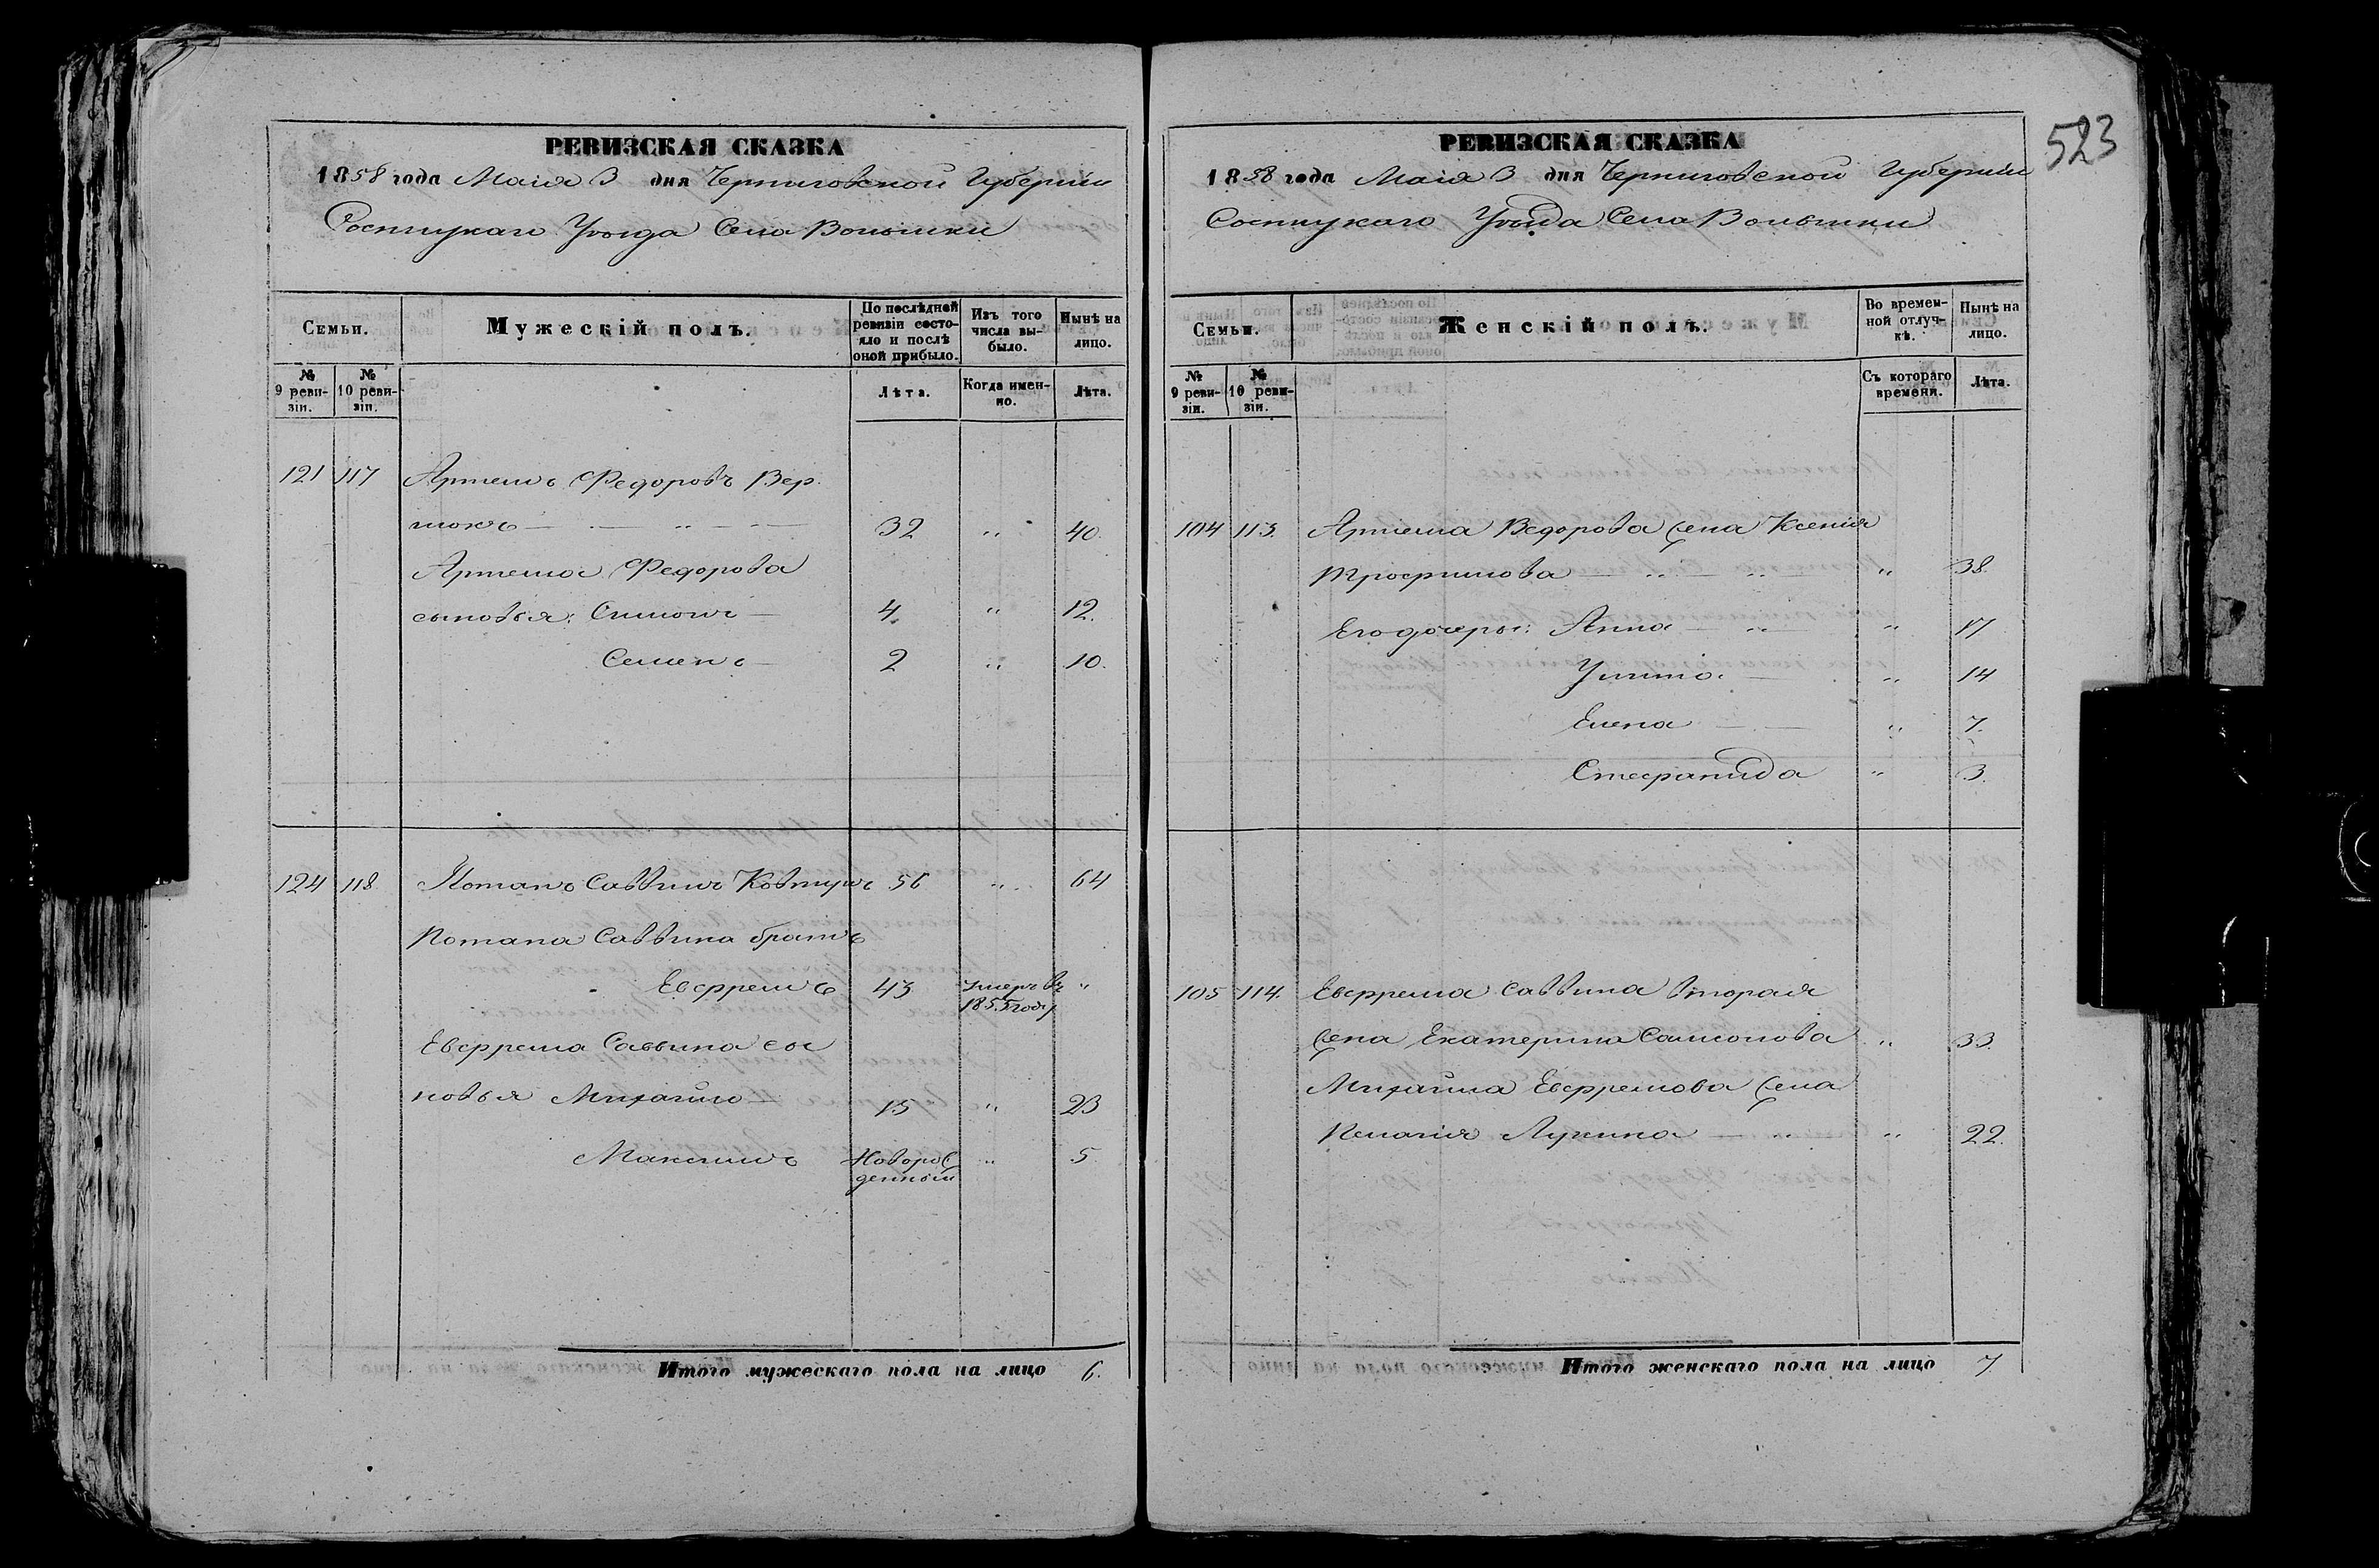 РЕВИЗСКАЯ СКАЗКА
1858 года Маія 3 дня Черниговской Губерніи
Сосницкаго Уѣзда Села Волынки
Семьи.
Мужескій полъ.
По послѣдней ревизіи состояло и послѣ оной прибыло.
Изъ того числа выбыло.
Нынѣ на лицо.
№ 9 ревизіи.
№ 10 ревизіи.
Лѣта.
Когда именно.
Лѣта.
121 117 Артемъ Федоровъ Вер
шокъ — „ — 32 „ 40.
Артема Федорова
сыновья: Симонъ — 4. „ 12.
Семенъ — 2 „ 10.
124 118 Потапъ Саввинъ Ковтунъ 56 „ 64
Потапа Саввина братъ
Евфремъ 43 умеръ въ 1855 году „
Евфрема Саввина сы
новья Михайло — 15 „ 23
Максимъ Новорожденный „ 5
Итого мужескаго пола на лицо 6.
523
РЕВИЗСКАЯ СКАЗКА
1858 года Маія 3 дня Черниговской Губерніи
Сосницкаго Уѣзда Села Волынки
Семьи.
Женскій полъ.
Во временной отлучкѣ.
Нынѣ на лицо.
№ 9 ревизіи.
№ 10 ревизіи.
Съ котораго времени.
Лѣта.
104 113. Артема Федорова жена Ксенія
Трофимова — „ — „ „ 38.
Его дочеры: Анна — „ — „ 17
Улита — „ 14
Елена — — „ 7.
Стефанида „ 3.
105 114. Евфрема Саввина вторая
жена Екатерина Самсонова „ 33.
Михайла Евфремова жена
Пелагія Лукина — „ „ 22.
Итого женскаго пола на лицо 7.